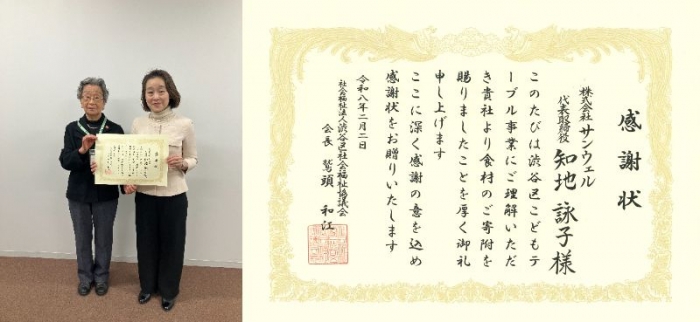 感謝状
株式会社 サンウェル
代表取締役 知地 詠子 様
このたびは渋谷区こどもテ
ーブル事業にご理解いただ
き貴社より食材のご寄附を
賜りましたことを厚く御礼
申し上げます
ここに深く感謝の意を込め
感謝状をお贈りいたします
令和八年二月二日
社会福祉法人渋谷区社会福祉協議会
会長 鷲頭 和江